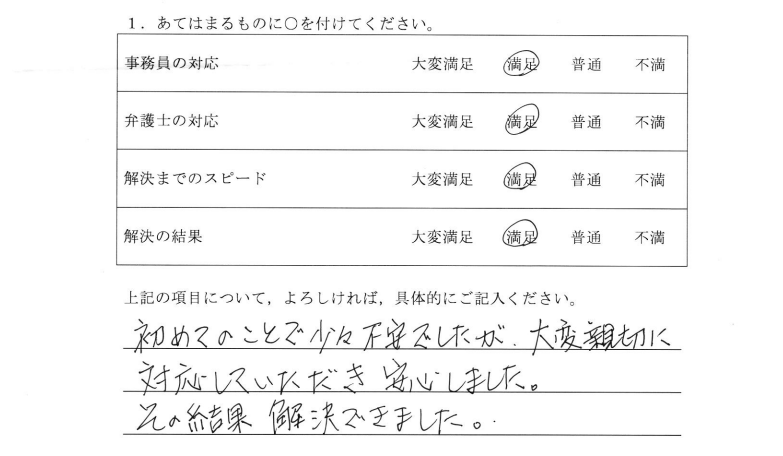 １．あてはまるものに○を付けてください。
事務員の対応 大変満足 満足 普通 不満
弁護士の対応 大変満足 満足 普通 不満
解決までのスピード 大変満足 満足 普通 不満
解決の結果 大変満足 満足 普通 不満
上記の項目について，よろしければ，具体的にご記入ください。
初めてのことで少々不安でしたが、大変親切に
対応していただき安心しました。
その結果解決できました。